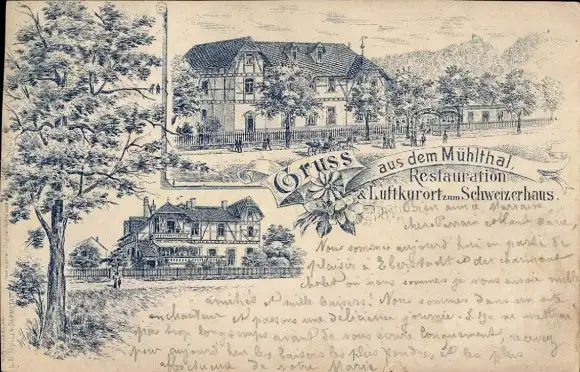 Gruss aus dem Mühlthal.
Restauration
& Luftkurort zum Schweizerhaus.
Nous sommes aujourd'hui en partie de
plaisir à Eberstadt et du charmant
chalet où nous sommes je vous envoie mille
amitiés et mille baisers! Nous sommes dans un site
enchanteur et passons une délicieuse journée.
pas trop longtemps avant de vous écrire longuement, recevez
pour aujourd'hui les baisers les plus tendres et les plus
affectueux de votre Marie